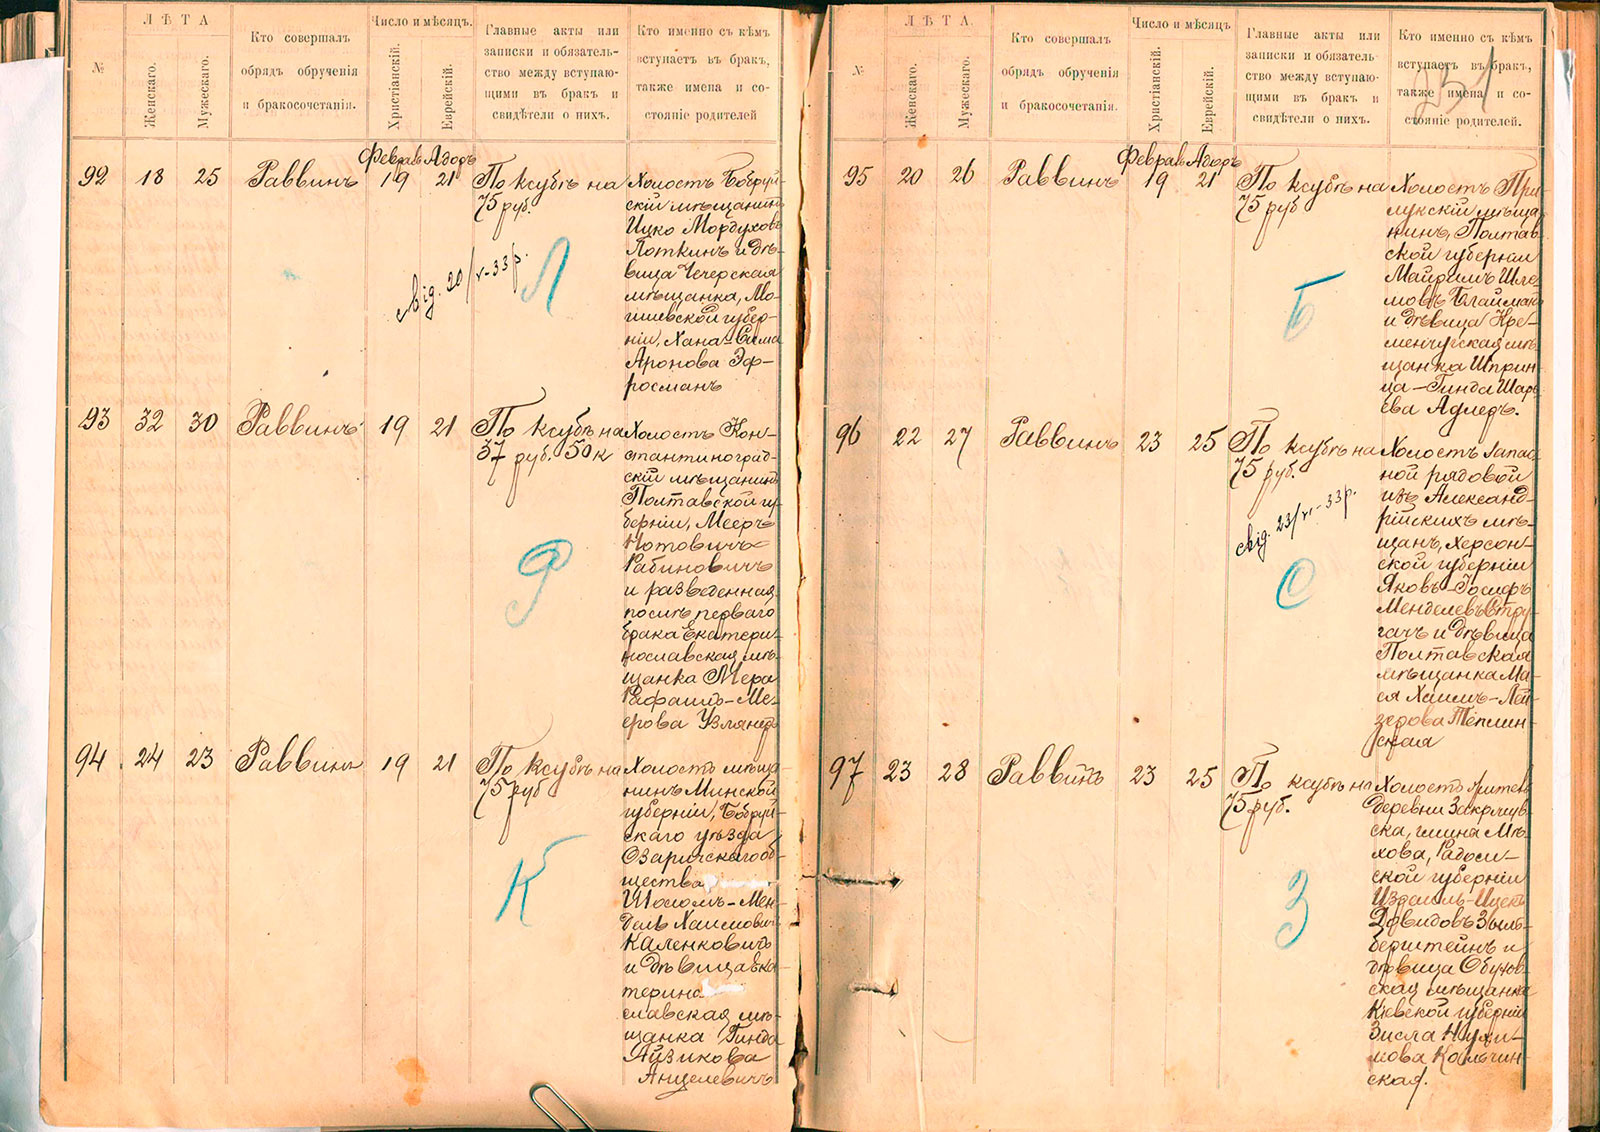 №
ЛѢТА
Женскаго.
Мужескаго.
Кто совершалъ
обрядъ обрученія
и бракосочетанія.
Число и мѣсяцъ.
Христіанскій.
Еврейскій.
Главные акты или
записки и обязатель-
ство между вступаю-
щими въ бракъ и
свидѣтели о нихъ.
Кто именно съ кѣмъ
вступаетъ въ бракъ,
также имена и со-
стояніе родителей
Феврал Адоръ
92 18 25 Раввинъ 19 21
По ксубѣ на
75 руб.
свід. 20/V-33 р.
Л
Холостъ Бобруй-
скій мѣщанинъ
Ицко Мордуховъ
Лоткинъ и дѣ-
вица Чечерская
мѣщанка, Мо-
гилевской губер-
ніи, Хана-Сима
Аронова Эф-
росманъ
93 32 30 Раввинъ 19 21
По ксубѣ на
37 руб. 50 к
Р
Холостъ Кон-
стантиноград-
скій мѣщанинъ
Полтавской гу-
берніи, Мееръ
Нотовичъ
Рабиновичъ
и разведенная
послѣ перваго
брака Екатери-
нославская мѣ-
щанка Мера
Рафаилъ-Ме-
ерова Узляндъ
94 24 23 Раввинъ 19 21
По ксубѣ на
75 руб
К
Холостъ мѣща-
нинъ Минской
губерніи, Бобруй-
скаго уѣзда
Озаричскаго об-
щества
Шоломъ-Мен-
дель Хаимовичъ
Каленковичъ
и дѣвица Ека-
терино
славская мѣ-
щанка Гинда
Айзикова
Анцелевичъ
№
ЛѢТА.
Женскаго.
Мужескаго.
Кто совершалъ
обрядъ обрученія
и бракосочетанія.
Число и мѣсяцъ
Христіанскій.
Еврейскій.
Главные акты или
записки и обязатель-
ство между вступаю-
щими въ бракъ и
свидѣтели о нихъ.
Кто именно съ кѣмъ
вступаетъ въ бракъ,
также имена и со-
стояніе родителей.
251
Феврал Адоръ
95 20 26 Раввинъ 19 21
По ксубѣ на
75 руб
Б
Холостъ При-
лукскій мѣща-
нинъ, Полтав-
ской губерніи
Майримъ Шле-
мовъ Блайман
и дѣвица Кре-
менчугская мѣ-
щанка Шприн-
ца-Гинда Шарь-
ева Адлеръ.
96 22 27 Раввинъ 23 25
По ксубѣ на
75 руб.
свід. 23/VI-33 р.
С
Холостъ запас-
ной рядовой
изъ Александ-
рійскихъ мѣ-
щанъ, Херсон-
ской губерніи
Яковъ-Іосифъ
Менделевъ Стру-
гачъ и дѣвица
Полтавская
мѣщанка Ма-
ся Хаимъ-Лей-
зерова Теплин-
ская
97 23 28 Раввинъ 23 25
По ксубѣ на
75 руб.
З
Холостъ житель
деревни Закржув-
ска, гмина Мѣ-
хова, Радом-
ской губерніи
Израиль-Ицекъ
Давидовъ Зыль-
берштейнъ и
дѣвица Обухов-
ская мѣщанка
Кіевской губерніи
Зисла Нухи-
мова Кальчин-
ская.